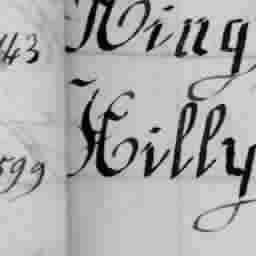 143 King
599 Hilly